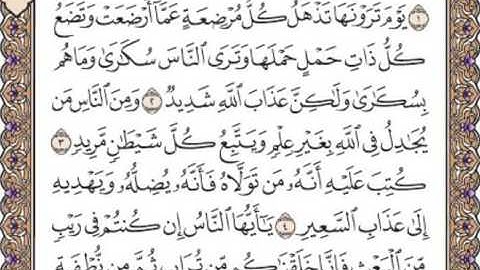 ١ يَوْمَ تَرَوْنَهَا تَذْهَلُ كُلُّ مُرْضِعَةٍ عَمَّآ أَرْضَعَتْ وَتَضَعُ
كُلُّ ذَاتِ حَمْلٍ حَمْلَهَا وَتَرَى ٱلنَّاسَ سُكَٰرَىٰ وَمَا هُم
بِسُكَٰرَىٰ وَلَٰكِنَّ عَذَابَ ٱللَّهِ شَدِيدٌ ٢ وَمِنَ ٱلنَّاسِ مَن
يُجَٰدِلُ فِى ٱللَّهِ بِغَيْرِ عِلْمٍ وَيَتَّبِعُ كُلَّ شَيْطَٰنٍ مَّرِيدٍ ٣
كُتِبَ عَلَيْهِ أَنَّهُۥ مَن تَوَلَّاهُ فَأَنَّهُۥ يُضِلُّهُۥ وَيَهْدِيهِ
إِلَىٰ عَذَابِ ٱلسَّعِيرِ ٤ يَٰٓأَيُّهَا ٱلنَّاسُ إِن كُنتُمْ فِى رَيْبٍ
مِّنَ ٱلْبَعْثِ فَإِنَّا خَلَقْنَٰكُم مِّن تُرَابٍ ثُمَّ مِن نُّطْفَةٍ